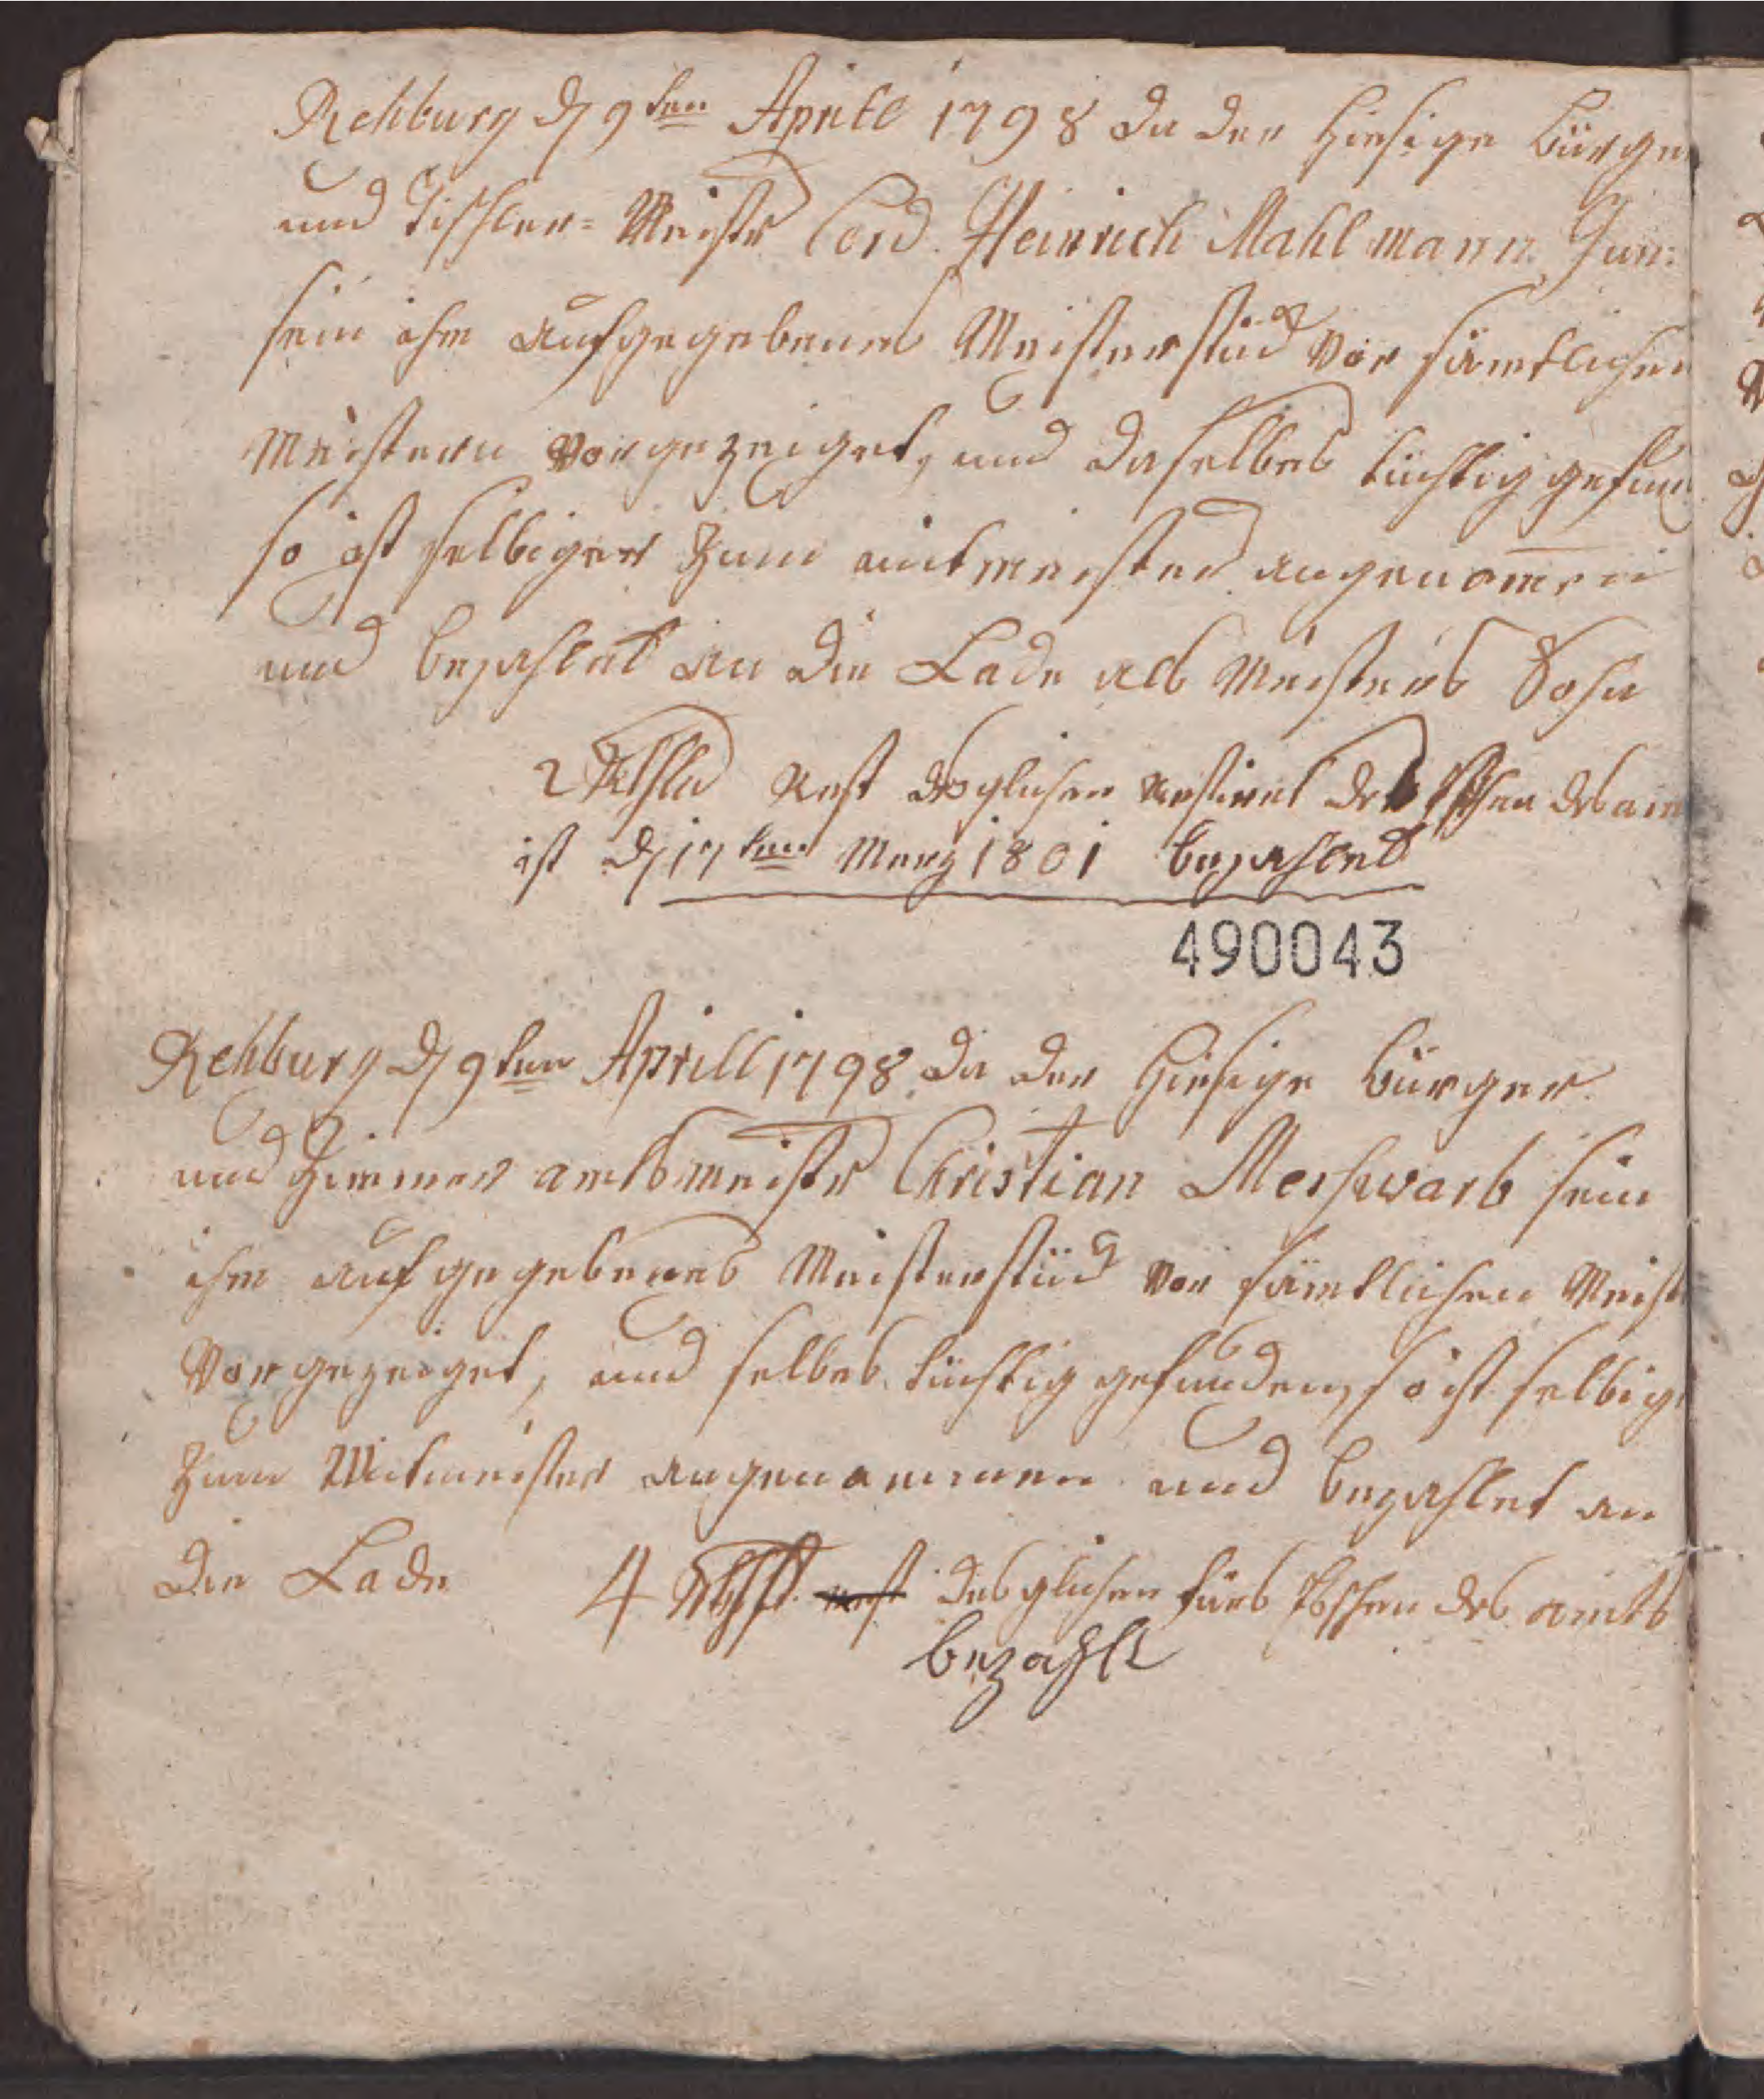 Rehburg d 9ten Aprill 1798 da der Hiesige Bürger
und Tischler= Meistr Cord. Heinrich Mahlmann Jun:
sein ihm aufgegebenes Meisterstück vor sämtlichen
Meistern vorgezeiget, und daselbes tüchtig gefun
so ist selbiger zum mitmeister angenomen
und bezahlet an die Lade als Meisters Sohn
2 Rthlr Rest desglichen restiret des Eßen des am
ist d 17ten Merz 1801 bezahlet
490043
Rehburg d 9ten Aprill 1798 da der Hiesige Bürger
und Zimmer amtsmeistr Christian Meschwarb sein
ihm aufgegebenes Meisterstück vor sämtlichen Meist
vorgezeiget, und selbes tüchtig gefunden, so ist selbig
zum Mitmeister angenommen und bezahlet an
die Lade 4 Rthlr rest desglichen fürs Eßen des amts
bezahlt